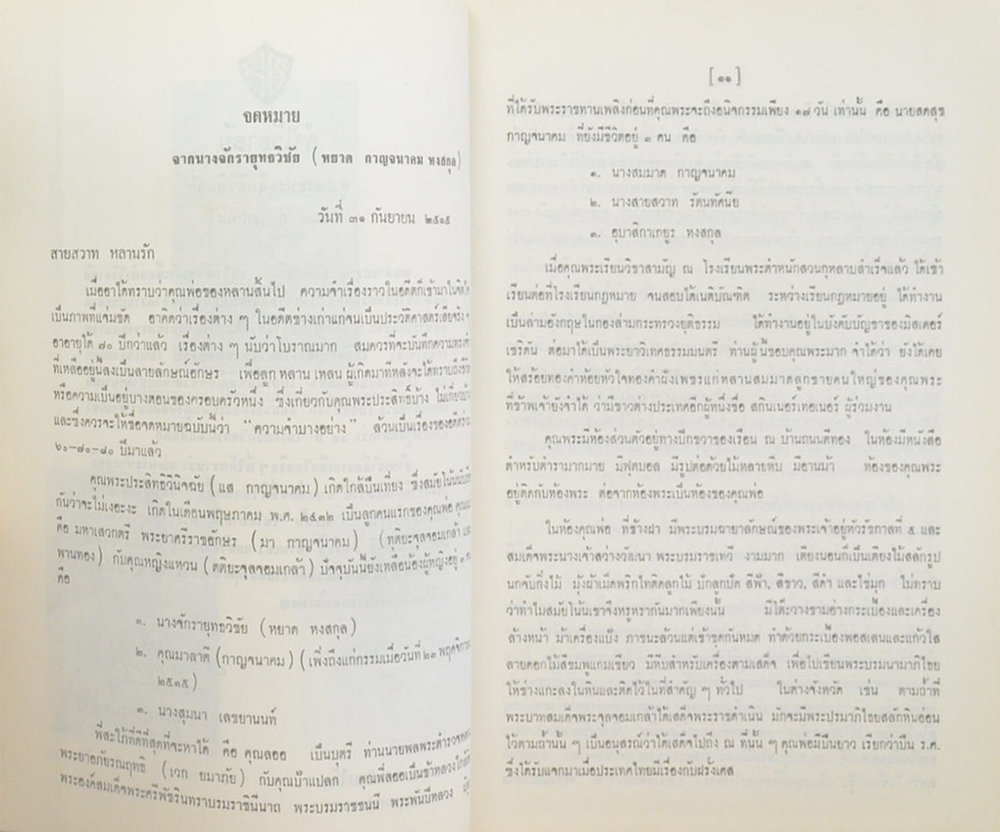 จดหมาย
จากนางจักรายุทธวิชัย (หยาด กาญจนาคม หงสกุล)
วันที่ ๓๑ กันยายน ๒๕๑๕
สายสวาท หลานรัก
เมื่ออาได้ทราบว่าคุณพ่อของหลานสิ้นไป ความจำเรื่องราวในอดีตก็เข้ามาในจิตใจ
เป็นภาพที่แจ่มชัด อาคิดว่าเรื่องต่าง ๆ ในอดีตช่างเก่าแก่จนเป็นประวัติศาสตร์เสียจริง ๆ
อาอายุได้ ๘๐ ปีกว่าแล้ว เรื่องต่าง ๆ นับว่าโบราณมาก สมควรที่จะบันทึกความทรงจำ
ที่เหลืออยู่นี้ลงเป็นลายลักษณ์อักษร เพื่อลูก หลาน เหลน ผู้เกิดมาทีหลังจะได้ทราบถึงชีวิต
หรือความเป็นอยู่บางตอนของครอบครัวหนึ่ง ซึ่งเกี่ยวกับคุณพระประสิทธิ์บ้าง ไม่เกี่ยวบ้าง
และซึ่งควรจะให้ชื่อจดหมายฉบับนี้ว่า "ความจำบางอย่าง" ล้วนเป็นเรื่องของอดีตราว
๖๐-๗๐-๘๐ ปีมาแล้ว
คุณพระประสิทธิวินิจฉัย (แส กาญจนาคม) เกิดใกล้ปืนเที่ยง ซึ่งสมัยโน้นนับถือ
กันว่าจะไม่เงอะงะ เกิดในเดือนพฤษภาคม พ.ศ. ๒๔๓๒ เป็นลูกคนแรกของคุณพ่อ คุณแม่
คือ มหาเสวกตรี พระยาศรีราชอักษร (มา กาญจนาคม) (ทุติยะจุลจอมเกล้า และ
พานทอง) กับคุณหญิงแหวน (ตติยะจุลจอมเกล้า) ปัจจุบันนี้ยังเหลือน้องผู้หญิงอยู่ ๓ คน
คือ
๑. นางจักรายุทธวิชัย (หยาด หงสกุล)
๒. คุณมาลาตี (กาญจนาคม) (เพิ่งถึงแก่กรรมเมื่อวันที่ ๒๓ พฤศจิกายน
๒๕๑๕)
๓. นางสุมนา เลขยานนท์
พี่สะใภ้ที่ดีที่สุดที่จะหาได้ คือ คุณลออ เป็นบุตรี ท่านนายพลพระตำรวจตรี
พระยาอภัยรณฤทธิ (เวก ยมาภัย) กับคุณป้าแปลก คุณพี่ลออเป็นข้าหลวงใกล้ชิด
พระองค์สมเด็จพระศรีพัชรินทราบรมราชินีนาถ พระบรมราชชนนี พระพันปีหลวง
[๑๑]
ที่ได้รับพระราชทานเพลิงก่อนที่คุณพระจะถึงอนิจกรรมเพียง ๑๗ วัน เท่านั้น คือ นายสดสุข
กาญจนาคม ที่ยังมีชีวิตอยู่ ๓ คน คือ
๑. นางสมมาด กาญจนาคม
๒. นางสายสวาท รัตนทัศนีย
๓. อุบาสิกาเกยูร หงสกุล
เมื่อคุณพระเรียนวิชาสามัญ ณ โรงเรียนพระตำหนักสวนกุหลาบสำเร็จแล้ว ได้เข้า
เรียนต่อที่โรงเรียนกฎหมาย จนสอบได้เนติบัณฑิต ระหว่างเรียนกฎหมายอยู่ ได้ทำงาน
เป็นล่ามอังกฤษในกองล่ามกระทรวงยุติธรรม ได้ทำงานอยู่ในบังคับบัญชาของมิสเตอร์
เชริดัน ต่อมาได้เป็นพระยาวิเทศธรรมมนตรี ท่านผู้นี้ชอบคุณพระมาก จำได้ว่า ยังได้เคย
ให้สร้อยทองคำห้อยหัวใจทองคำฝังเพชรแก่หลานสมมาดลูกชายคนใหญ่ของคุณพระ
ที่ข้าพเจ้ายังจำได้ ว่ามีชาวต่างประเทศอีกผู้หนึ่งชื่อ สกินเนอร์เทอเนอร์ ผู้ร่วมงาน
คุณพระมีห้องส่วนตัวอยู่ทางปีกขวาของเรือน ณ บ้านถนนตีทอง ในห้องมีหนังสือ
ตำหรับตำรามากมาย มีฟุตบอล มีรูปต่อด้วยไม้หลายหีบ มีอานม้า ห้องของคุณพระ
อยู่ติดกับห้องพระ ต่อจากห้องพระเป็นห้องของคุณพ่อ
ในห้องคุณพ่อ ที่ข้างฝา มีพระบรมฉายาลักษณ์ของพระเจ้าอยู่หัวรัชกาลที่ ๕ และ
สมเด็จพระนางเจ้าสว่างวัฒนา พระบรมราชเทวี งามมาก เตียงนอนก็เป็นเตียงไม้สลักรูป
นกจับกิ่งไม้ มุ้งผ้าเด็คพริกไทติดลูกไม้ ปักลูกปัด สีฟ้า, สีขาว, สีดำ และไข่มุก ไม่ทราบ
ว่าทำไมสมัยโน้นเขาจึงหรูหรากันมากเพียงนั้น มีโต๊ะวางชามอ่างกระเบื้องและเครื่อง
ล้างหน้า ม้าเครื่องแป้ง ภาชนะล้วนแต่เข้าชุดกันหมด ทำด้วยกระเบื้องพอสเลนและแก้วใส
ลายดอกไม้สีชมพูแกมเขียว มีหีบสำหรับเครื่องตามเสด็จ เพื่อไปเขียนพระบรมนามาภิไธย
ให้ช่างแกะลงในหินและติดไว้ในที่สำคัญ ๆ ทั่วไป ในต่างจังหวัด เช่น ตามถ้ำที่
พระบาทสมเด็จพระจุลจอมเกล้าได้เสด็จพระราชดำเนิน มักจะมีพระปรมาภิไธยสลักหินอ่อน
ไว้ตามถ้ำนั้น ๆ เป็นอนุสรณ์ว่าได้เสด็จไปถึง ณ ที่นั้น ๆ คุณพ่อมีปืนยาว เรียกว่าปืน ร.ศ.
ซึ่งได้รับแจกมาเมื่อประเทศไทยมีเรื่องกับฝรั่งเศส